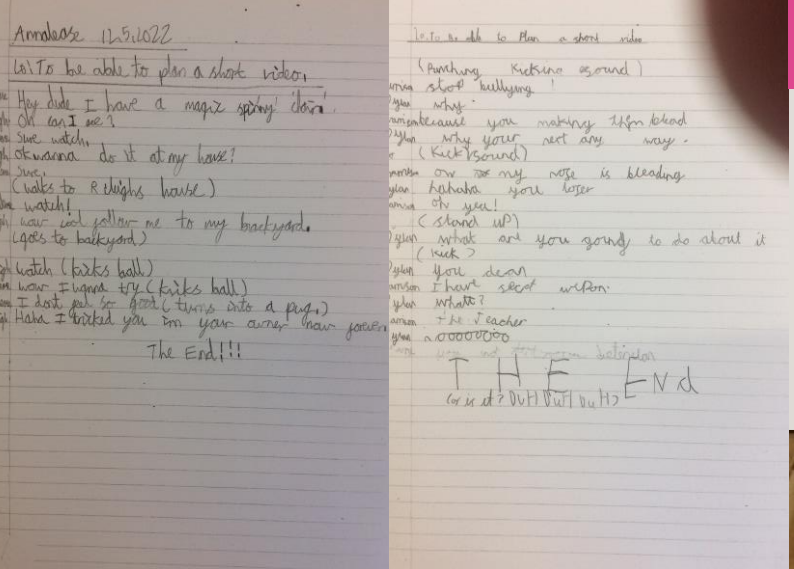 Annalease 12.5.2022
LO) To be able to plan a short video.
Hey dude I have a magic
Oh can I see?
Sure watch.
Ok wanna do it at my house?
Sure.
(walks to house)
watch!
wow cool follow me to my backyard.
(goes to backyard)
Watch (kicks ball)
wow I wanna try (kicks ball)
I don't feel so good (turns into a pug.)
Haha I tricked you im your owner now
The End!!!
Lo. To be able to Plan a short video
(Punching Kicking sound)
stop bullying!
Dylan why.
because you making him blead
Dylan why your next any way.
(Kick sound)
ow my nose is bleading
ylan hahaha you loser
oh you!
(stand up)
Dylan what are you going to do about it
(Kick)
Dylan you
I have secret
ylan what?
the Teacher
ylan
THE ENd
(or is it? DuH DuH DuH)